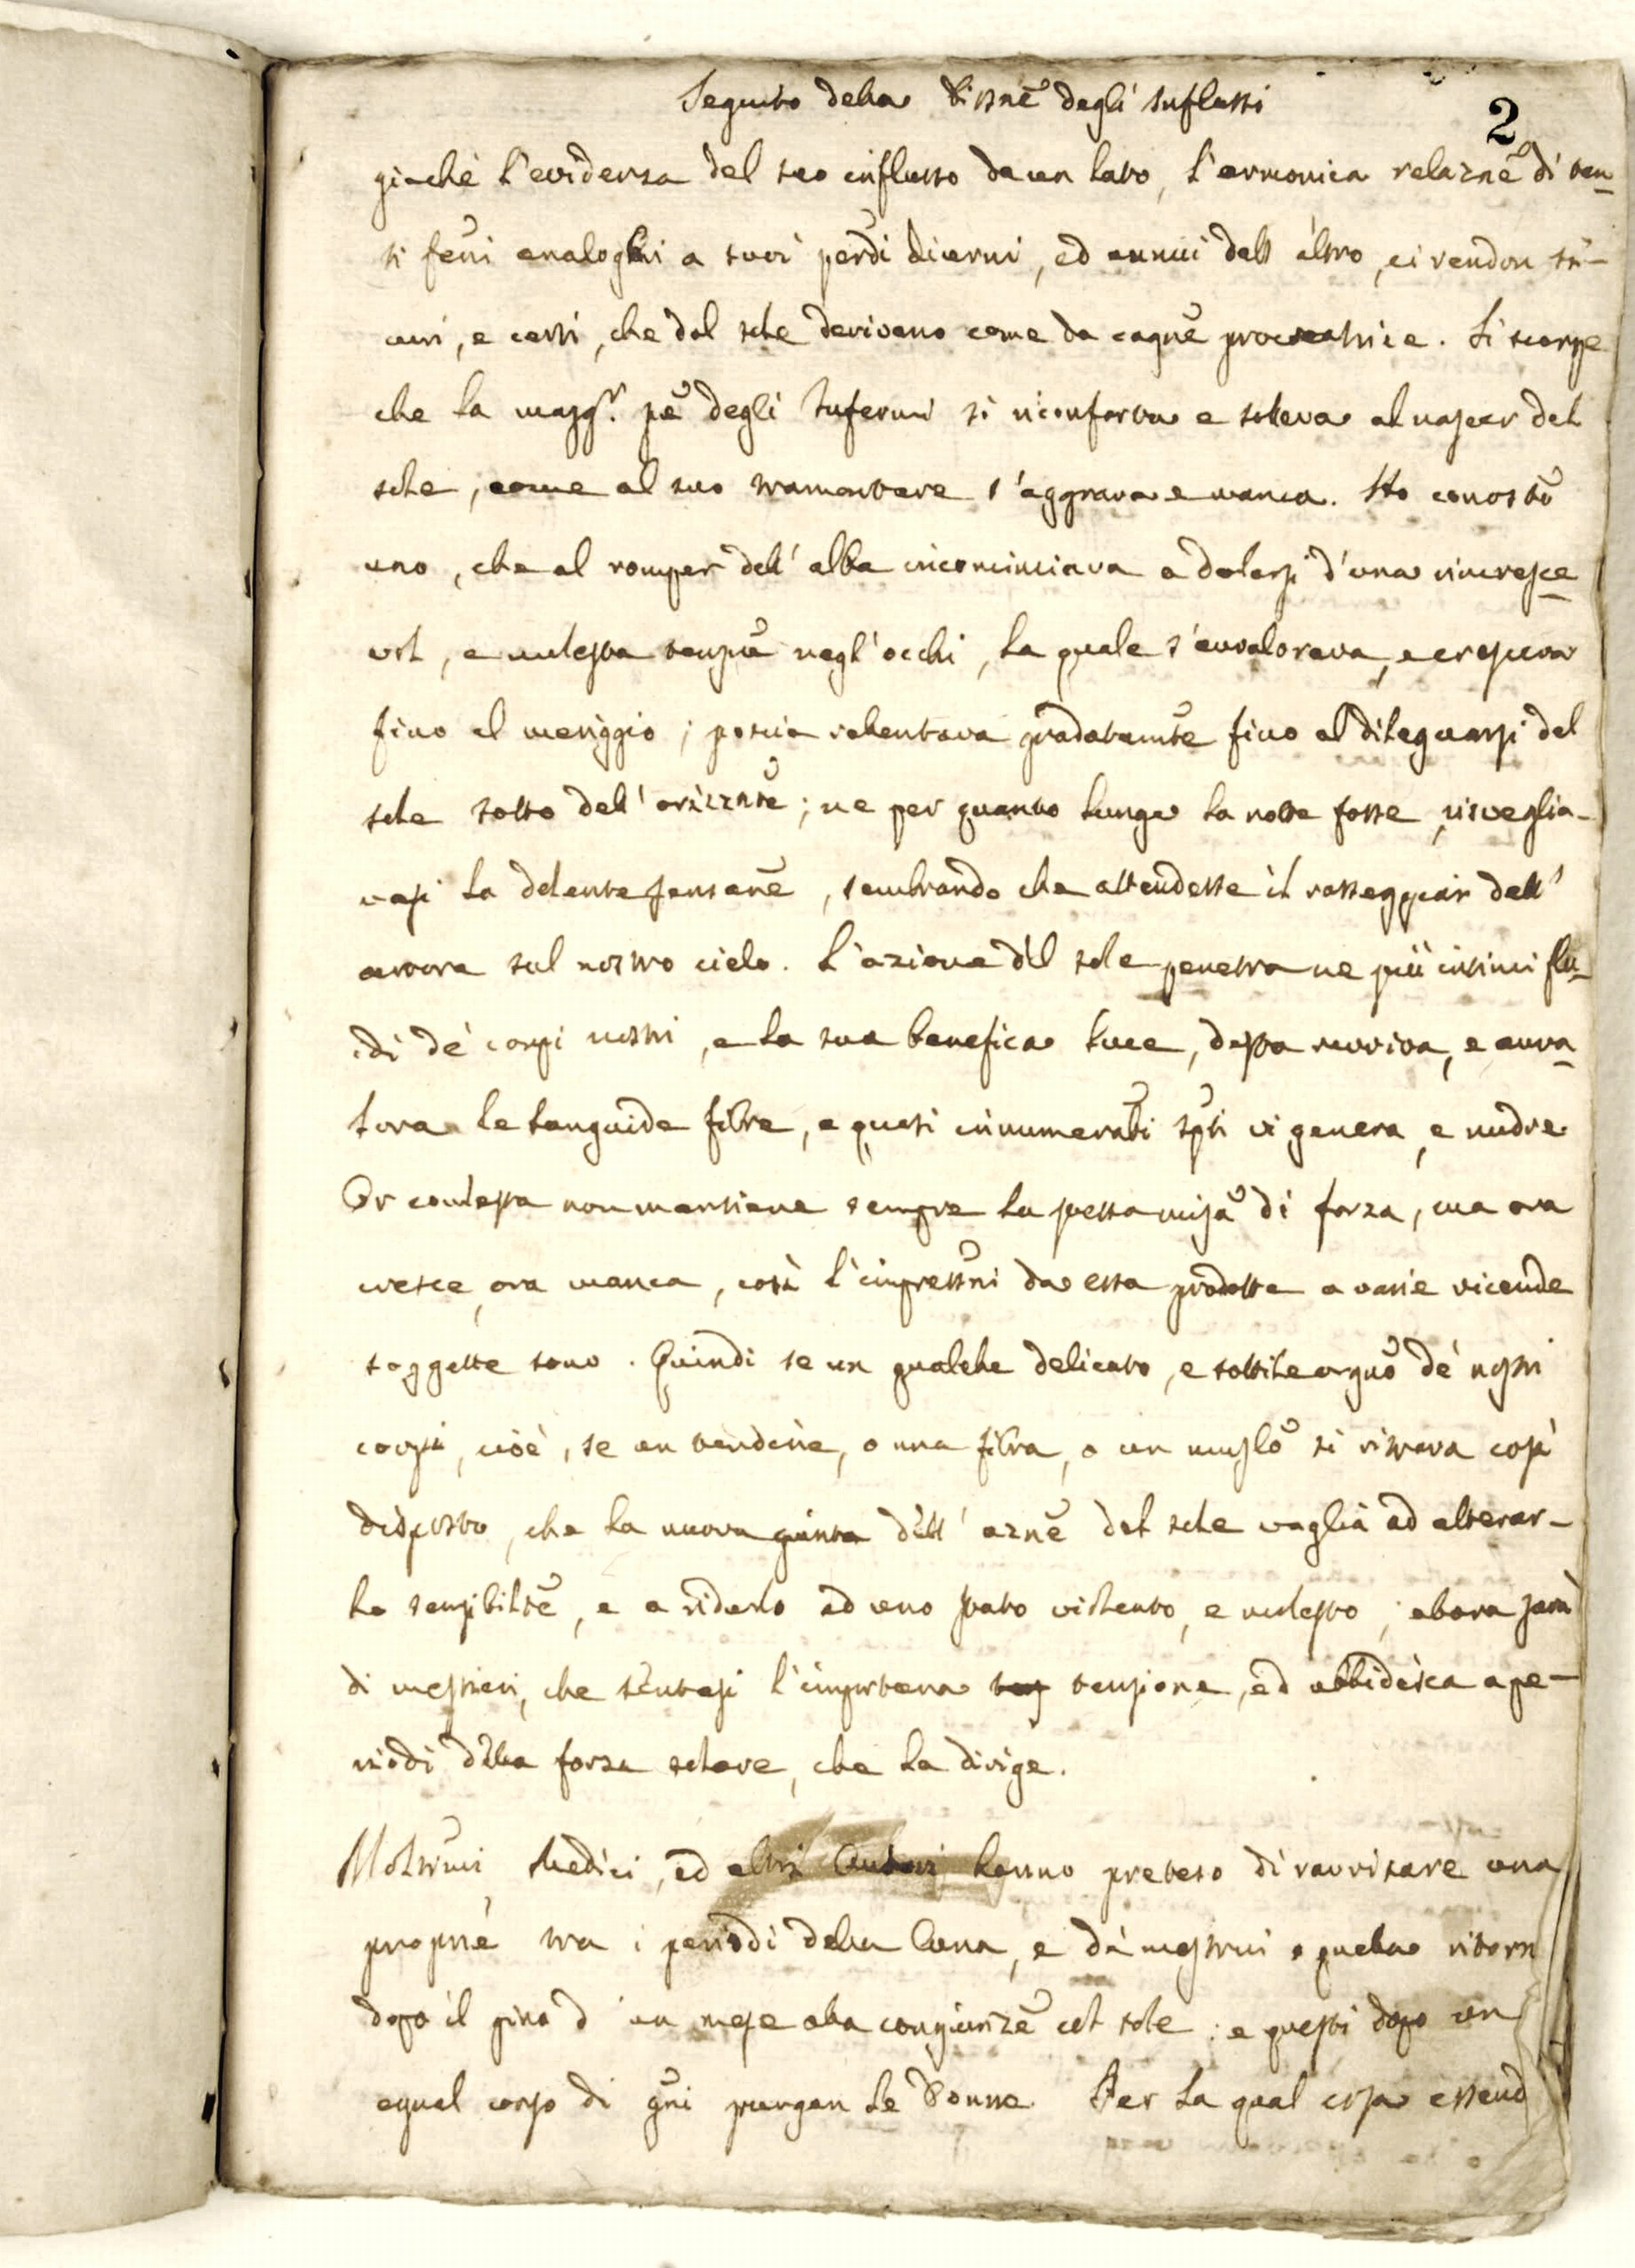 Seguito della Dissñe degli Influssi
2
giachè l'evidenza del suo influsso da un lato, l'armonica relazñe di tan-
ti feñi analoghi a suoi perdi diurni, ed annui dall'altro, ci rendon si-
curi, e certi, che dal sole derivano come da cagñe procreatrice. Si scorge
che la magg.r pẽ degli Infermi si riconforta e solleva al nascer del
sole, come al suo tramontare s'aggrava e manca. Ho conosto
uno, che al romper dell'alba incominciava a dolersi d'una rincresce-
vol, e molesta tensñe negl'occhi, la quale s'avvalorava, e cresceva
fino al meriggio; poscia rallentava gradatamte fino al dileguarsi del
sole sotto dell'orizznte; ne per quanto lunga la notte fosse, risveglia-
vasi la dolente sensanẽ, sembrando che attendesse il rosseggiar dell'
aurora sul nostro cielo. L'azione del sole penetra ne più intimi flu-
idi de' corpi nostri, e la sua benefica luce, desta ravviva, e avva-
lora le languide fibre, e quasi innumerabi spti vi genera, e nudre.
Or codesta non mantiene sempre la stessa misã di forza, ma ora
cresce, ora manca, così l'impressñi da essa prodotte a varie vicende
soggette sono. Quindi se un qualche delicato, e sottile orgnõ de' ñstri
corpi, cioè, se un tendine, o una fibra, o un musló si ritrova così
disposto, che la nuova giunta dell'aznẽ del sole vaglia ad alterar-
lo sensibiltẽ, e a ridurlo ad uno stato violento, e molesto, allora sarà
di mestieri, che sentasi l'importuna tensione, ed ubbidisca a pe-
riodi della forza solare, che la dirige.
Moltsmi Medici, ed altri Autori hanno preteso di ravvisare una
propriẽ tra i periodi della Luna, e dè mestrui: quella ritorn
dopo il giro d'un mese alla congiunzẽ col sole; e questi dopo un
egual corso di gñi purgan le Donne. Per la qual cosa essend